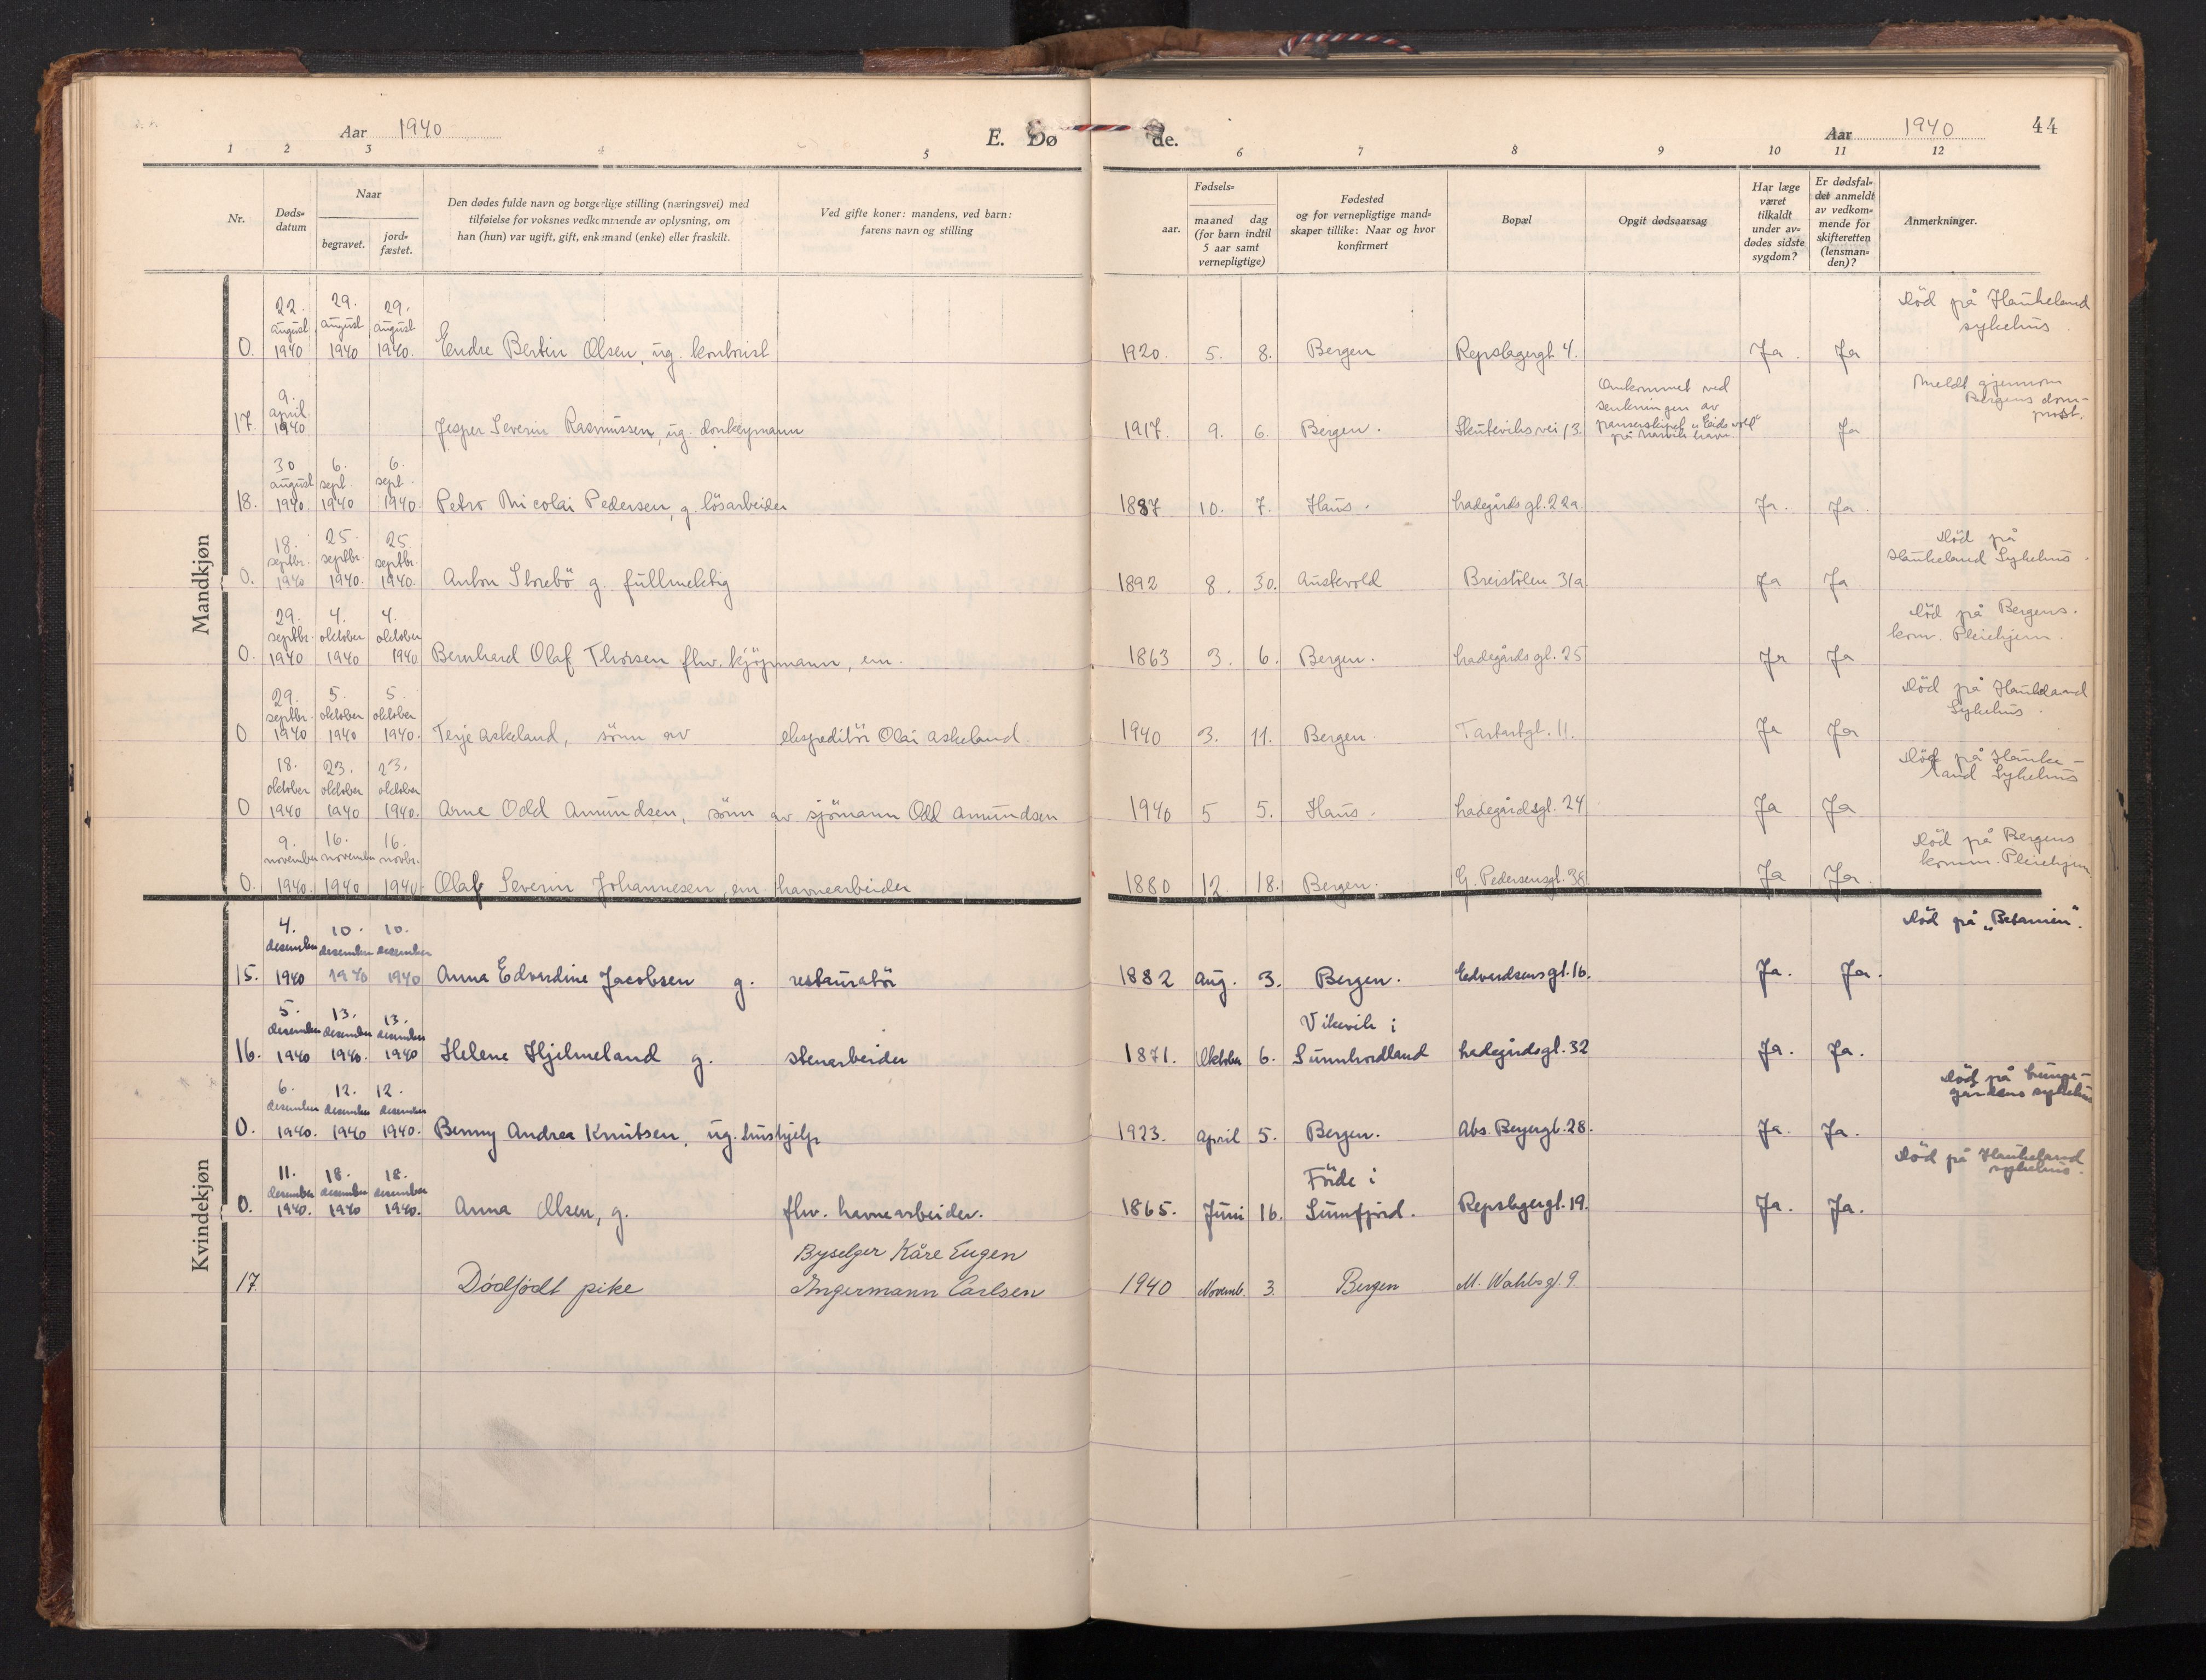 Aar 1940
E. Dø
de.
Aar 1940
44
1 2 3 4 5 6 7 8 9 10 11 12
Nr.
Døds-
datum
Naar
begravet.
jord-
fæstet.
Den dødes fulde navn og borgerlige stilling (næringsvei) med
tilføielse for voksnes vedkommende av oplysning, om
han (hun) var ugift, gift, enkemand (enke) eller fraskilt.
Ved gifte koner: mandens, ved barn:
farens navn og stilling
Fødsels-
aar.
maaned dag
(for barn indtil
5 aar samt
vernepligtige)
Fødested
og for vernepligtige mand-
skaper tillike: Naar og hvor
konfirmert
Bopæl
Opgit dødsaarsag
Har læge
været
tilkaldt
under av-
dødes sidste
sygdom?
Er dødsfal-
det anmeldt
av vedkom-
mende for
skifteretten
(lensman-
den)?
Anmerkninger.
Mandkjøn
22. 29. 29. Död på Haukeland
august august august sykehus
0. 1940 1940 1940. Endre Bertin Olsen, ug. kontorist 1920. 5. 8. Bergen Repslagergt. 4. Ja. Ja
9. Omkommet ved Meldt gjennom
april senkningen av Bergens dom-
17. 1940 Jesper Severin Rasmussen, ug. donkeymann 1917. 9. 6. Bergen. Skuteviksvei 13. panserskipet "Eidsvold" Ja prost.
på Narvik havn.
30 6. 6.
august sept. sept.
18. 1940 1940 1940. Petro Nicolai Pedersen, g. lösarbeider 1887 10. 7. Haus. Ladegårdsgt. 22a Ja. Ja
18. 25. 25. Död på
septbr. septbr. septbr. Haukeland Sykehus.
0. 1940 1940. 1940. Anton Storebö g. fullmektig 1892 8. 30. Austevold Breistölen 31a Ja Ja
29. 4. 4. Död på Bergens.
septbr. oktober oktober kom. Pleiehjem.
0. 1940 1940 1940 Bernhard Olaf Thorsen fhv. kjöpmann, em. 1863 3. 6. Bergen. Ladegårdsgt. 25 Ja Ja
29. 5. 5. Död på Haukeland
septbr. oktober oktober Sykehus.
0 1940 1940 1940. Terje Askeland, sönn av ekspeditör Olai Askeland. 1940 3. 11. Bergen. Tartargt. 11. Ja Ja
18. 23. 23. Död på Hauke-
oktober oktober oktober land Sykehus
0 1940 1940 1940. Arne Odd Amundsen, sönn av sjömann Odd Amundsen 1940 5 5. Haus. Ladegårdsgt. 24 Ja Ja
9. 16. 16. Död på Bergens
november november novbr. komm. Pleiehjem
0. 1940. 1940 1940. Olaf Severin Johannesen, em. havnearbeider 1880 12. 18. Bergen. G. Pedersensgt. 38 Ja Ja
Kvindekjøn
4. 10. 10. Död på "Betanien".
desember desember desember
15. 1940 1940 1940 Anna Edvardine Jacobsen g. restauratör 1882 Aug. 3. Bergen. Edvardsensgt. 16. Ja. Ja.
5. 13. 13. Vikevik i
desember desember desember
16. 1940 1940. 1940 Helene Hjelmeland g. stenarbeider 1871. Oktober 6. Sunnhordland Ladegårdsgt. 32 Ja. Ja.
6. 12. 12. Död på Lunge-
desember desember desember gårdens sykehus
0. 1940. 1940 1940. Benny Andrea Knutsen, ug. hushjelp 1923. April 5. Bergen. Abs. Beyergt. 28. Ja. Ja.
11. 18. 18. Förde i Död på Haukeland
desember desember desember sykehus.
0. 1940. 1940 1940. Anna Olsen, g. fhv. havnearbeider. 1865. Juni 16. Sunnfjord. Repslagergt. 19. Ja. Ja.
Byselger Kåre Eugen
17. Dödfödt pike Ingermann Carlsen 1940 Novemb. 3. Bergen M. Wahlsgt. 9